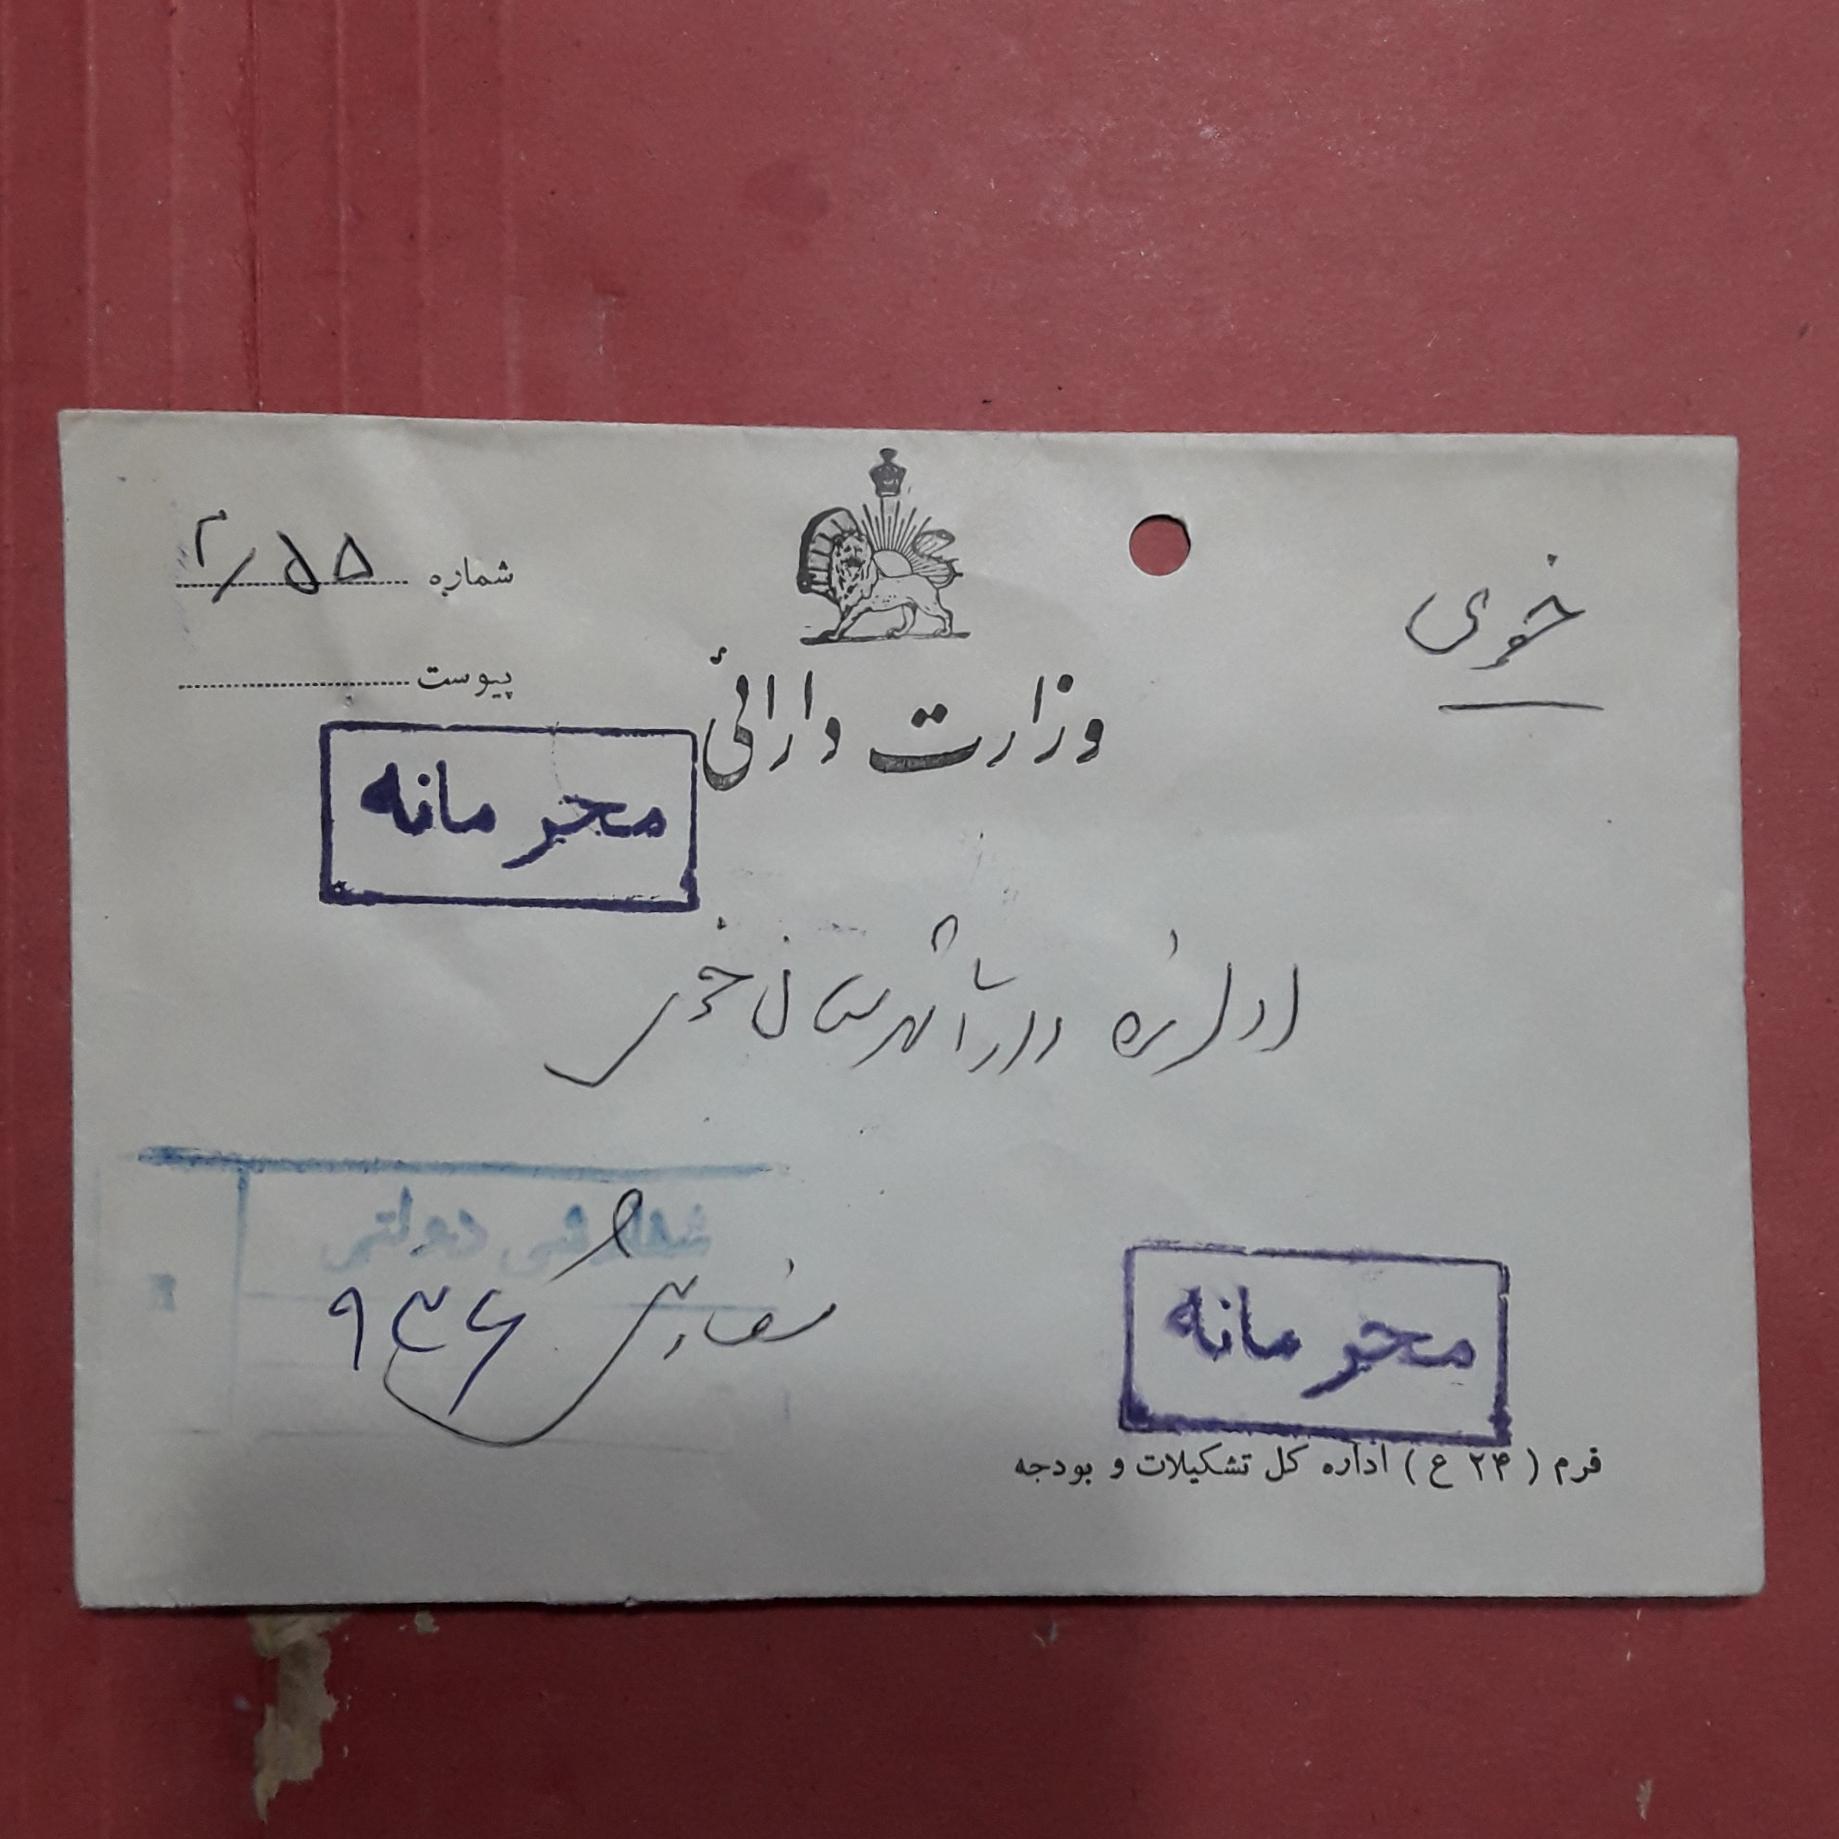 خوی
شماره ۲/۵۵
پیوست
وزارت دارائی
محرمانه
اداره دارائی شهرستان خوی
سفارشی دولتی
سفارشی
۹۳۶
محرمانه
فرم ( ۲۴ ع ) اداره کل تشکیلات و بودجه